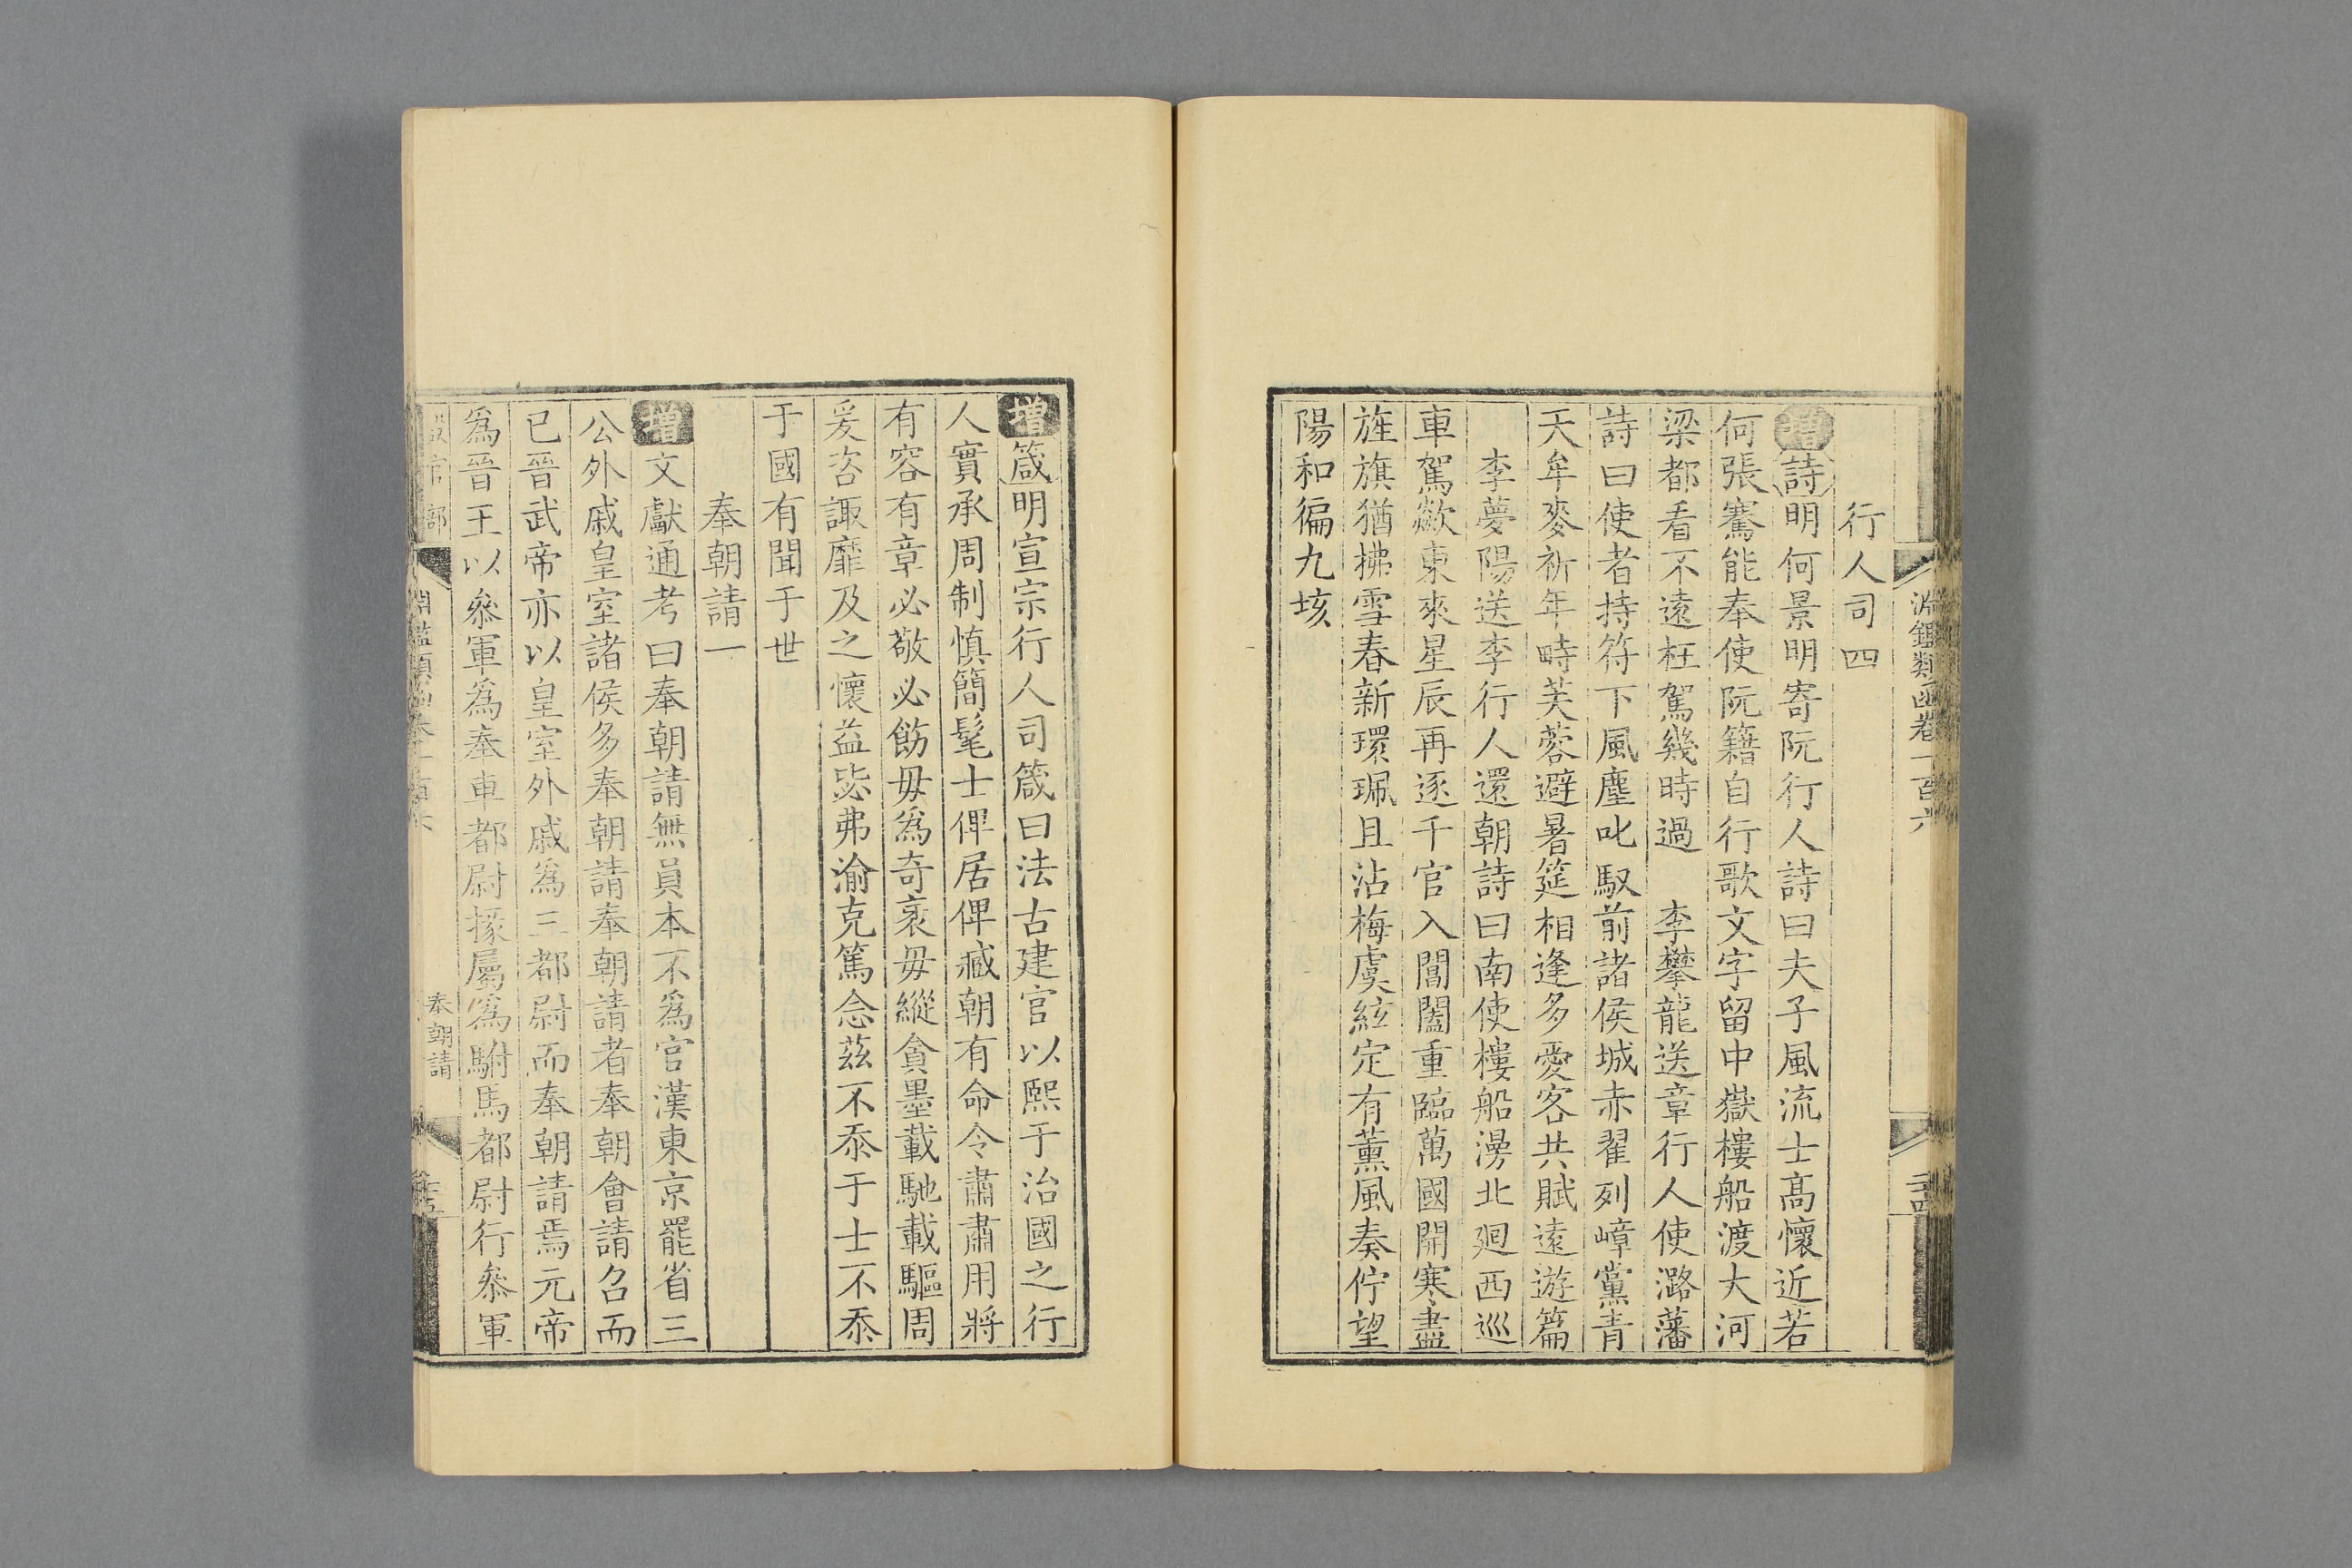 淵鑑類函卷一百六
行人司四
增詩明何景明寄阮行人詩曰夫子風流士高懷近若
何張騫能奉使阮籍自行歌文字留中嶽樓船渡大河
梁都看不遠枉駕幾時過　李攀龍送章行人使潞藩
詩曰使者持符下風塵叱馭前諸侯城赤翟列嶂黨青
天牟麥祈年畤芙蓉避暑筵相逢多愛客共賦遠遊篇
李夢陽送李行人還朝詩曰南使樓船漫北迴西巡
車駕歘東來星辰再逐千官入閶闔重臨萬國開寒盡
旌旗猶拂雪春新環珮且沾梅虞絃定有薰風奏佇望
陽和徧九垓
增箴明宣宗行人司箴曰法古建官以熙于治國之行
人實承周制慎簡髦士俾居俾臧朝有命令肅肅用將
有容有章必敬必飭毋為奇衺毋縱貪墨載馳載驅周
爰咨諏靡及之懷益毖弗渝克篤念茲不忝于士不忝
于國有聞于世
奉朝請一
增文獻通考曰奉朝請無員本不為官漢東京罷省三
公外戚皇室諸侯多奉朝請奉朝請者奉朝會請召而
已晉武帝亦以皇室外戚為三都尉而奉朝請焉元帝
為晉王以叅軍為奉車都尉掾屬為駙馬都尉行叅軍
設官部
奉朝請